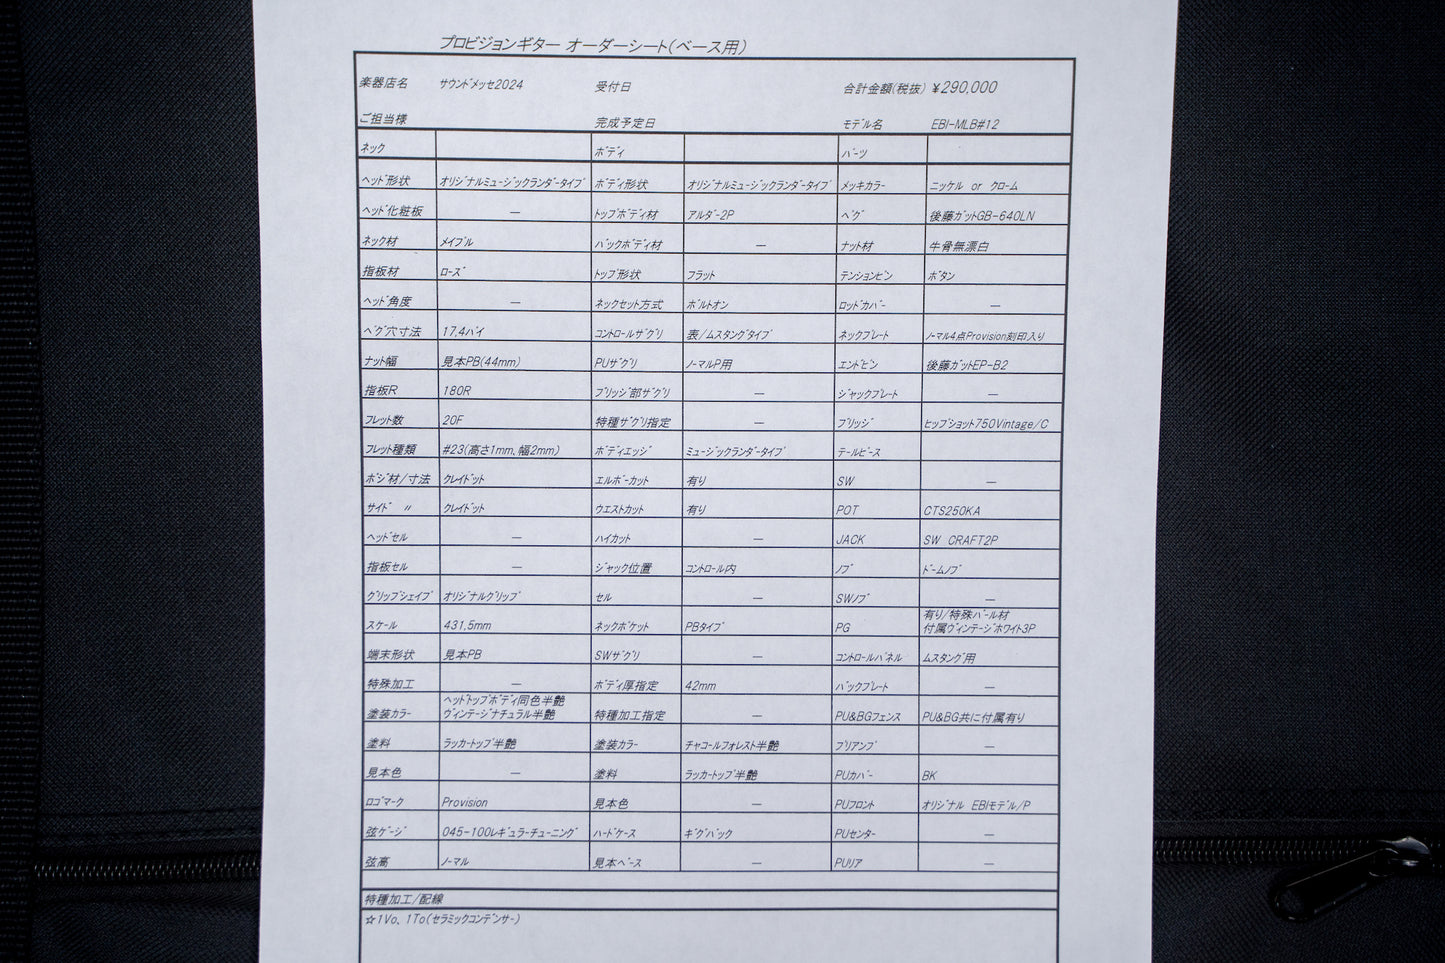 プロビジョンギター オーダーシート(ベース用)
楽器店名 サウンドメッセ2024 受付日 合計金額(税抜) ¥290,000
ご担当様 完成予定日 モデル名 EBI-MLB#12
ネック ボディ パーツ
ヘッド形状 オリジナルミュージックランダータイプ ボディ形状 オリジナルミュージックランダータイプ メッキカラー ニッケル or クローム
ヘッド化粧板 ― トップボディ材 アルダー2P ペグ 後藤ガットGB-640LN
ネック材 メイプル バックボディ材 ― ナット材 牛骨無漂白
指板材 ローズ トップ形状 フラット テンションピン ボタン
ヘッド角度 ― ネックセット方式 ボルトオン ロッドカバー ―
ペグ穴寸法 17.4パイ コントロールザグリ 表/ムスタングタイプ ネックプレート ノーマル4点Provision刻印入り
ナット幅 見本PB(44mm) PUザグリ ノーマルP用 エンドピン 後藤ガットEP-B2
指板R 180R ブリッジ部ザグリ ― ジャックプレート ―
フレット数 20F 特種ザグリ指定 ― ブリッジ ヒップショット750Vintage/C
フレット種類 #23(高さ1mm、幅2mm) ボディエッジ ミュージックランダータイプ テールピース
ポジ材/寸法 クレイドット エルボーカット 有り SW ―
サイド 〃 クレイドット ウエストカット 有り POT CTS250KA
ヘッドセル ― ハイカット ― JACK SW CRAFT2P
指板セル ― ジャック位置 コントロール内 ノブ ドームノブ
グリップシェイプ オリジナルグリップ セル ― SWノブ ―
スケール 431.5mm ネックポケット PBタイプ PG 有り/特殊パール材
付属ヴィンテージホワイト3P
端末形状 見本PB SWザグリ ― コントロールパネル ムスタング用
特殊加工 ― ボディ厚指定 42mm バックプレート ―
塗装カラー ヘッドトップボディ同色半艶
ヴィンテージナチュラル半艶 特種加工指定 ― PU&BGフェンス PU&BG共に付属有り
塗料 ラッカートップ半艶 塗装カラー チャコールフォレスト半艶 プリアンプ ―
見本色 ― 塗料 ラッカートップ半艶 PUカバー BK
ロゴマーク Provision 見本色 ― PUフロント オリジナル EBIモデル/P
弦ゲージ 045-100レギュラーチューニング ハードケース ギグバック PUセンター ―
弦高 ノーマル 見本ベース ― PUリア ―
特種加工/配線
☆1Vo、1To(セラミックコンデンサー)